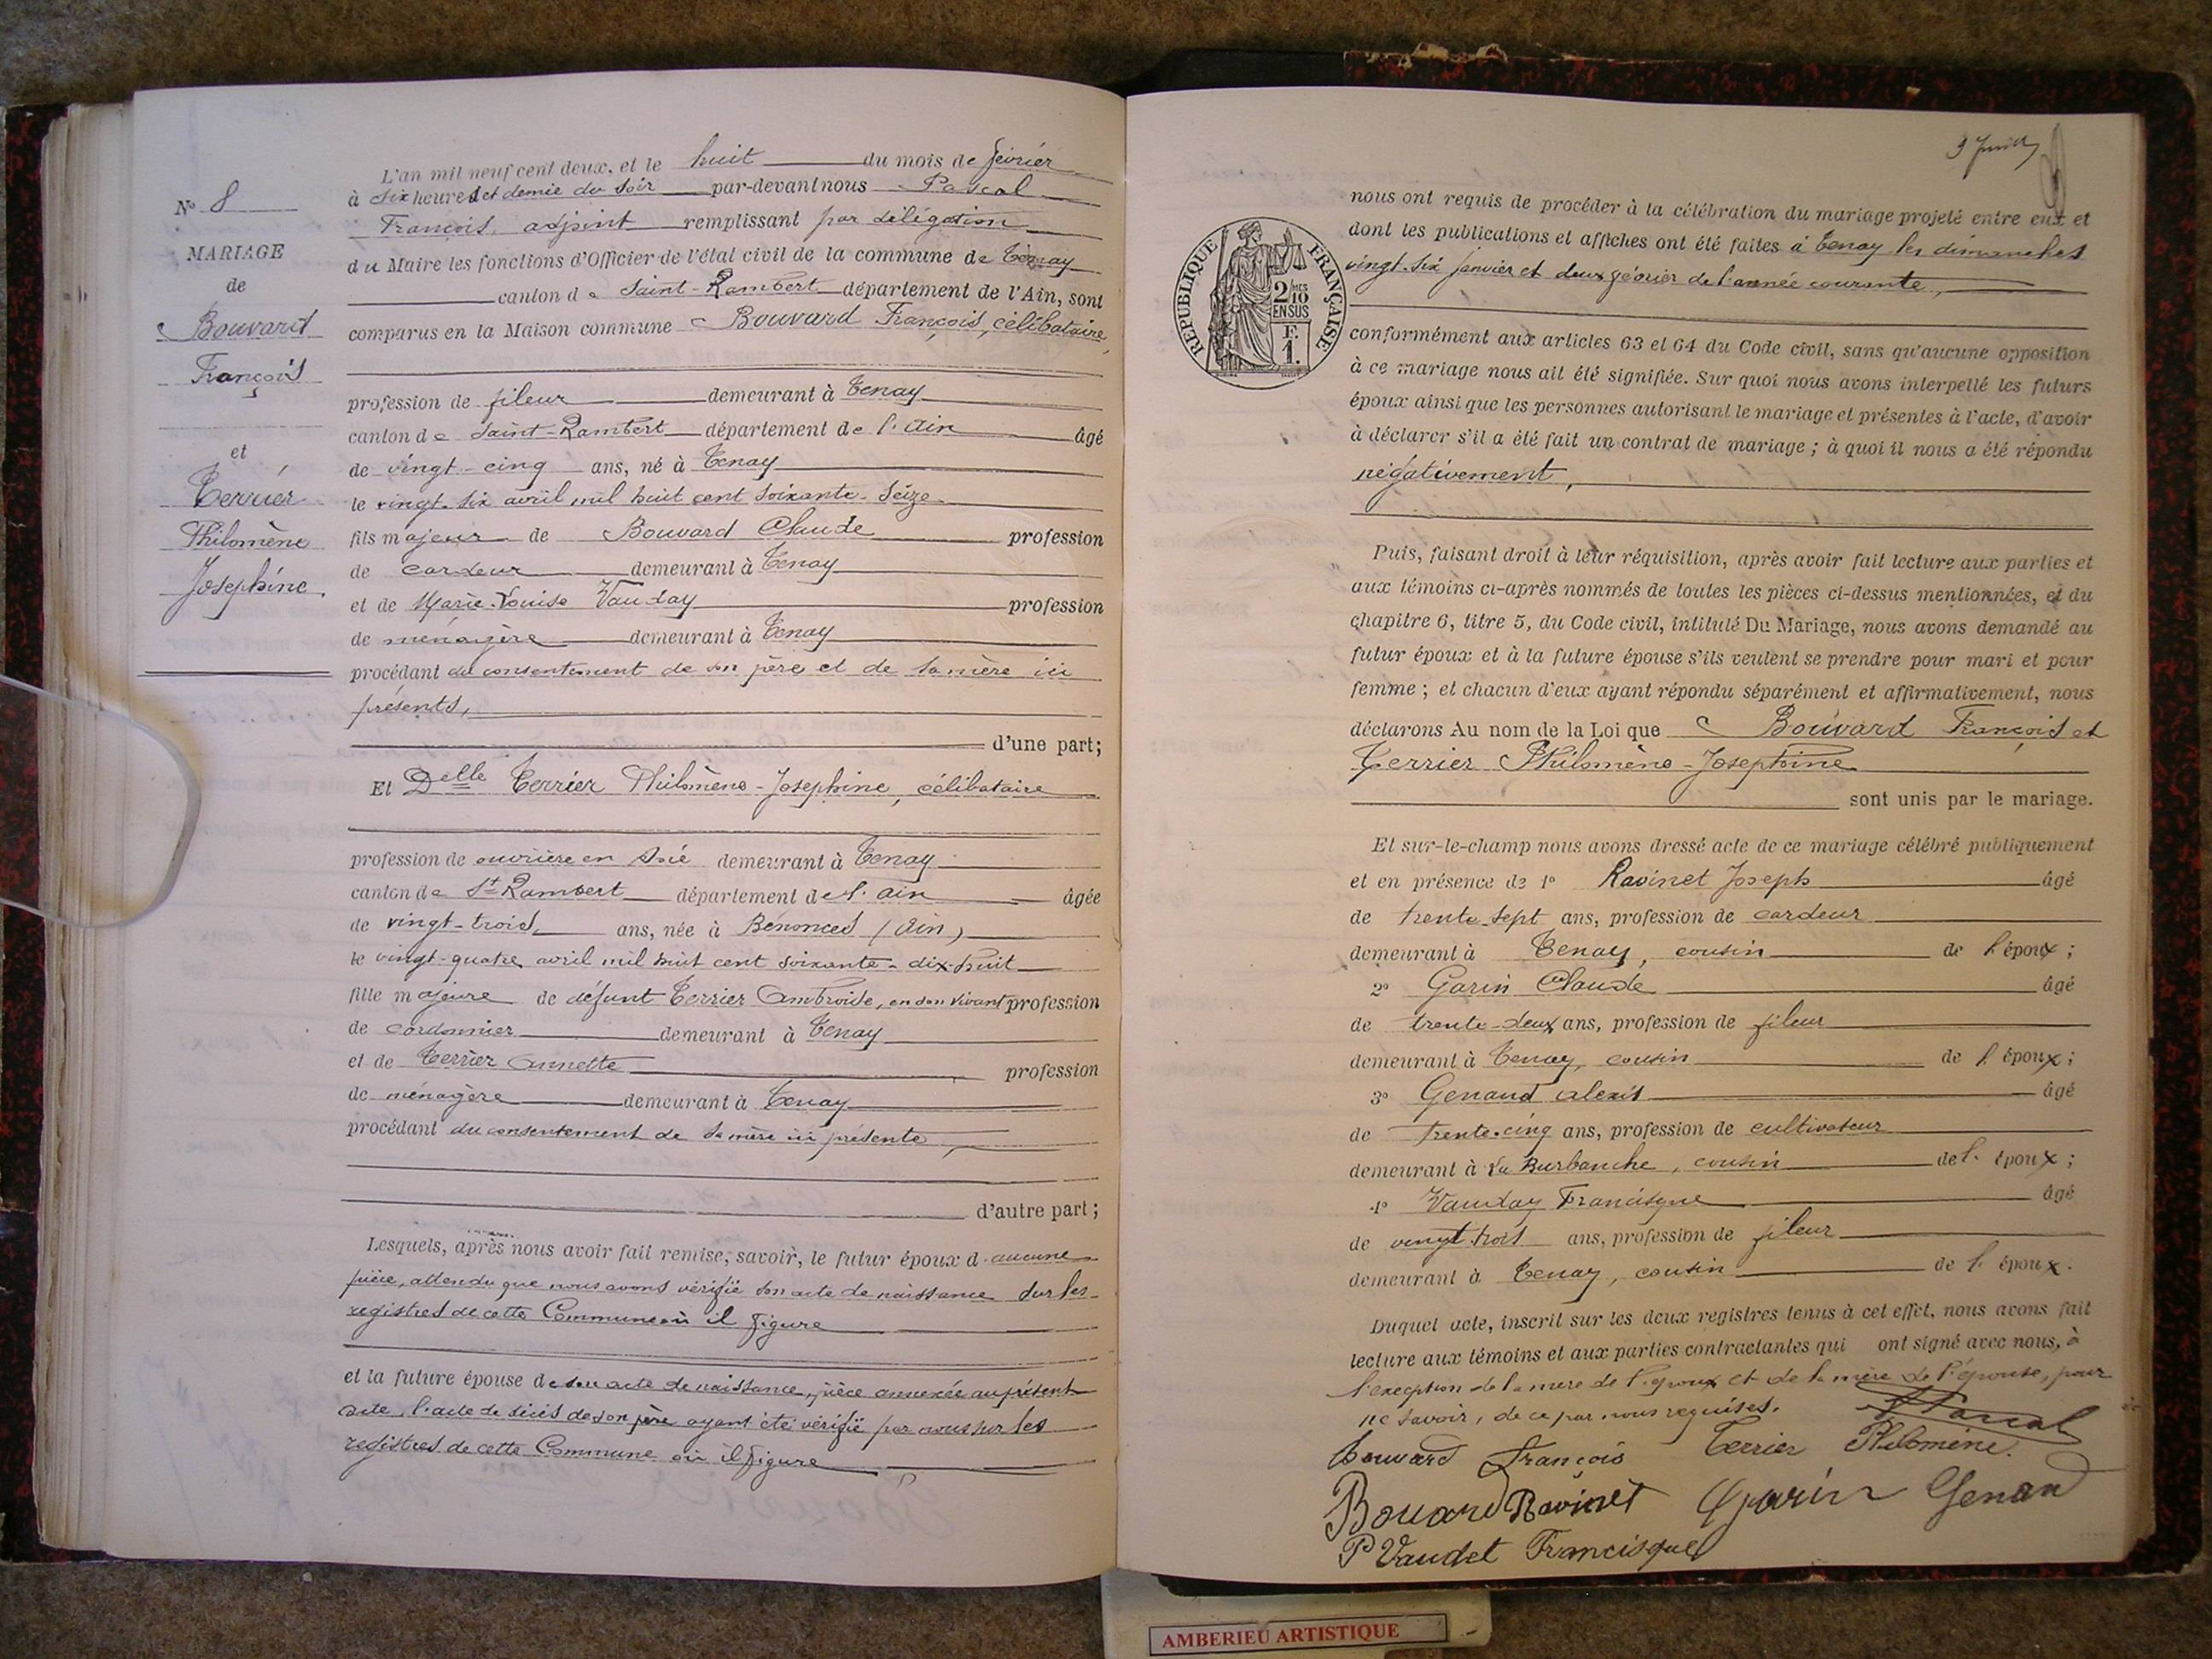 N° 8
MARIAGE
de
Bouvard
François
et
Terrier
Philomène
Joséphine.
L'an mil neuf cent deux, et le huit du mois de février
à six heures et demie du soir par-devant nous Pascal
François, adjoint remplissant par délégation
du Maire les fonctions d'Officier de l'état civil de la commune de Tenay
canton de Saint-Rambert département de l'Ain, sont
comparus en la Maison commune Bouvard François, célibataire,
profession de fileur demeurant à Tenay
canton de Saint-Rambert département de l'Ain âgé
de vingt-cinq ans, né à Tenay
le vingt-six avril mil huit cent soixante-seize
fils majeur de Bouvard Claude profession
de cardeur demeurant à Tenay
et de Marie-Louise Vauday profession
de ménagère demeurant à Tenay
procédant du consentement de son père et de sa mère ici
présents,
d'une part;
Et Delle Terrier Philomène-Joséphine, célibataire
profession de ouvrière en soie demeurant à Tenay
canton de St Rambert département de l'Ain âgée
de vingt-trois ans, née à Bénonces (Ain)
le vingt-quatre avril mil huit cent soixante-dix-huit
fille majeure de défunt Terrier Ambroise, en son vivant profession
de cordonnier demeurant à Tenay
et de Terrier Annette profession
de ménagère demeurant à Tenay
procédant du consentement de sa mère ici présente,
d'autre part;
Lesquels, après nous avoir fait remise, savoir, le futur époux d'aucune
pièce, attendu que nous avons vérifié son acte de naissance sur les
registres de cette Commune où il figure
et la future épouse de son acte de naissance, pièce annexée au présent
acte, l'acte de décès de son père ayant été vérifié par nous sur les
registres de cette Commune où il figure
RÉPUBLIQUE FRANÇAISE
2/10MES
EN SUS
F.
1.
nous ont requis de procéder à la célébration du mariage projeté entre eux et
dont les publications et affiches ont été faites à Tenay les dimanches
vingt-six janvier et deux février de l'année courante,
conformément aux articles 63 et 64 du Code civil, sans qu'aucune opposition
à ce mariage nous ait été signifiée. Sur quoi nous avons interpellé les futurs
époux ainsi que les personnes autorisant le mariage et présentes à l'acte, d'avoir
à déclarer s'il a été fait un contrat de mariage; à quoi il nous a été répondu
négativement,
Puis, faisant droit à leur réquisition, après avoir fait lecture aux parties et
aux témoins ci-après nommés de toutes les pièces ci-dessus mentionnées, et du
chapitre 6, titre 5, du Code civil, intitulé Du Mariage, nous avons demandé au
futur époux et à la future épouse s'ils veulent se prendre pour mari et pour
femme; et chacun d'eux ayant répondu séparément et affirmativement, nous
déclarons Au nom de la Loi que Bouvard François et
Terrier Philomène-Joséphine
sont unis par le mariage.
Et sur-le-champ nous avons dressé acte de ce mariage célébré publiquement
et en présence de 1° Ravinet Joseph âgé
de trente-sept ans, profession de cardeur
demeurant à Tenay, cousin de l'époux;
2° Garin Claude âgé
de trente-deux ans, profession de fileur
demeurant à Tenay, cousin de l'époux;
3° Genaud Alexis âgé
de trente-cinq ans, profession de cultivateur
demeurant à La Burbanche, cousin de l'époux;
4° Vauday Francisque âgé
de vingt-trois ans, profession de fileur
demeurant à Tenay, cousin de l'époux.
Duquel acte, inscrit sur les deux registres tenus à cet effet, nous avons fait
lecture aux témoins et aux parties contractantes qui ont signé avec nous, à
l'exception de la mère de l'époux et de la mère de l'épouse, pour
ne savoir, de ce par nous requises.
Pascal
Bouvard François Terrier Philomène.
Bouvard Ravinet Garin Genand
Vaudet Francisque
AMBERIEU ARTISTIQUE